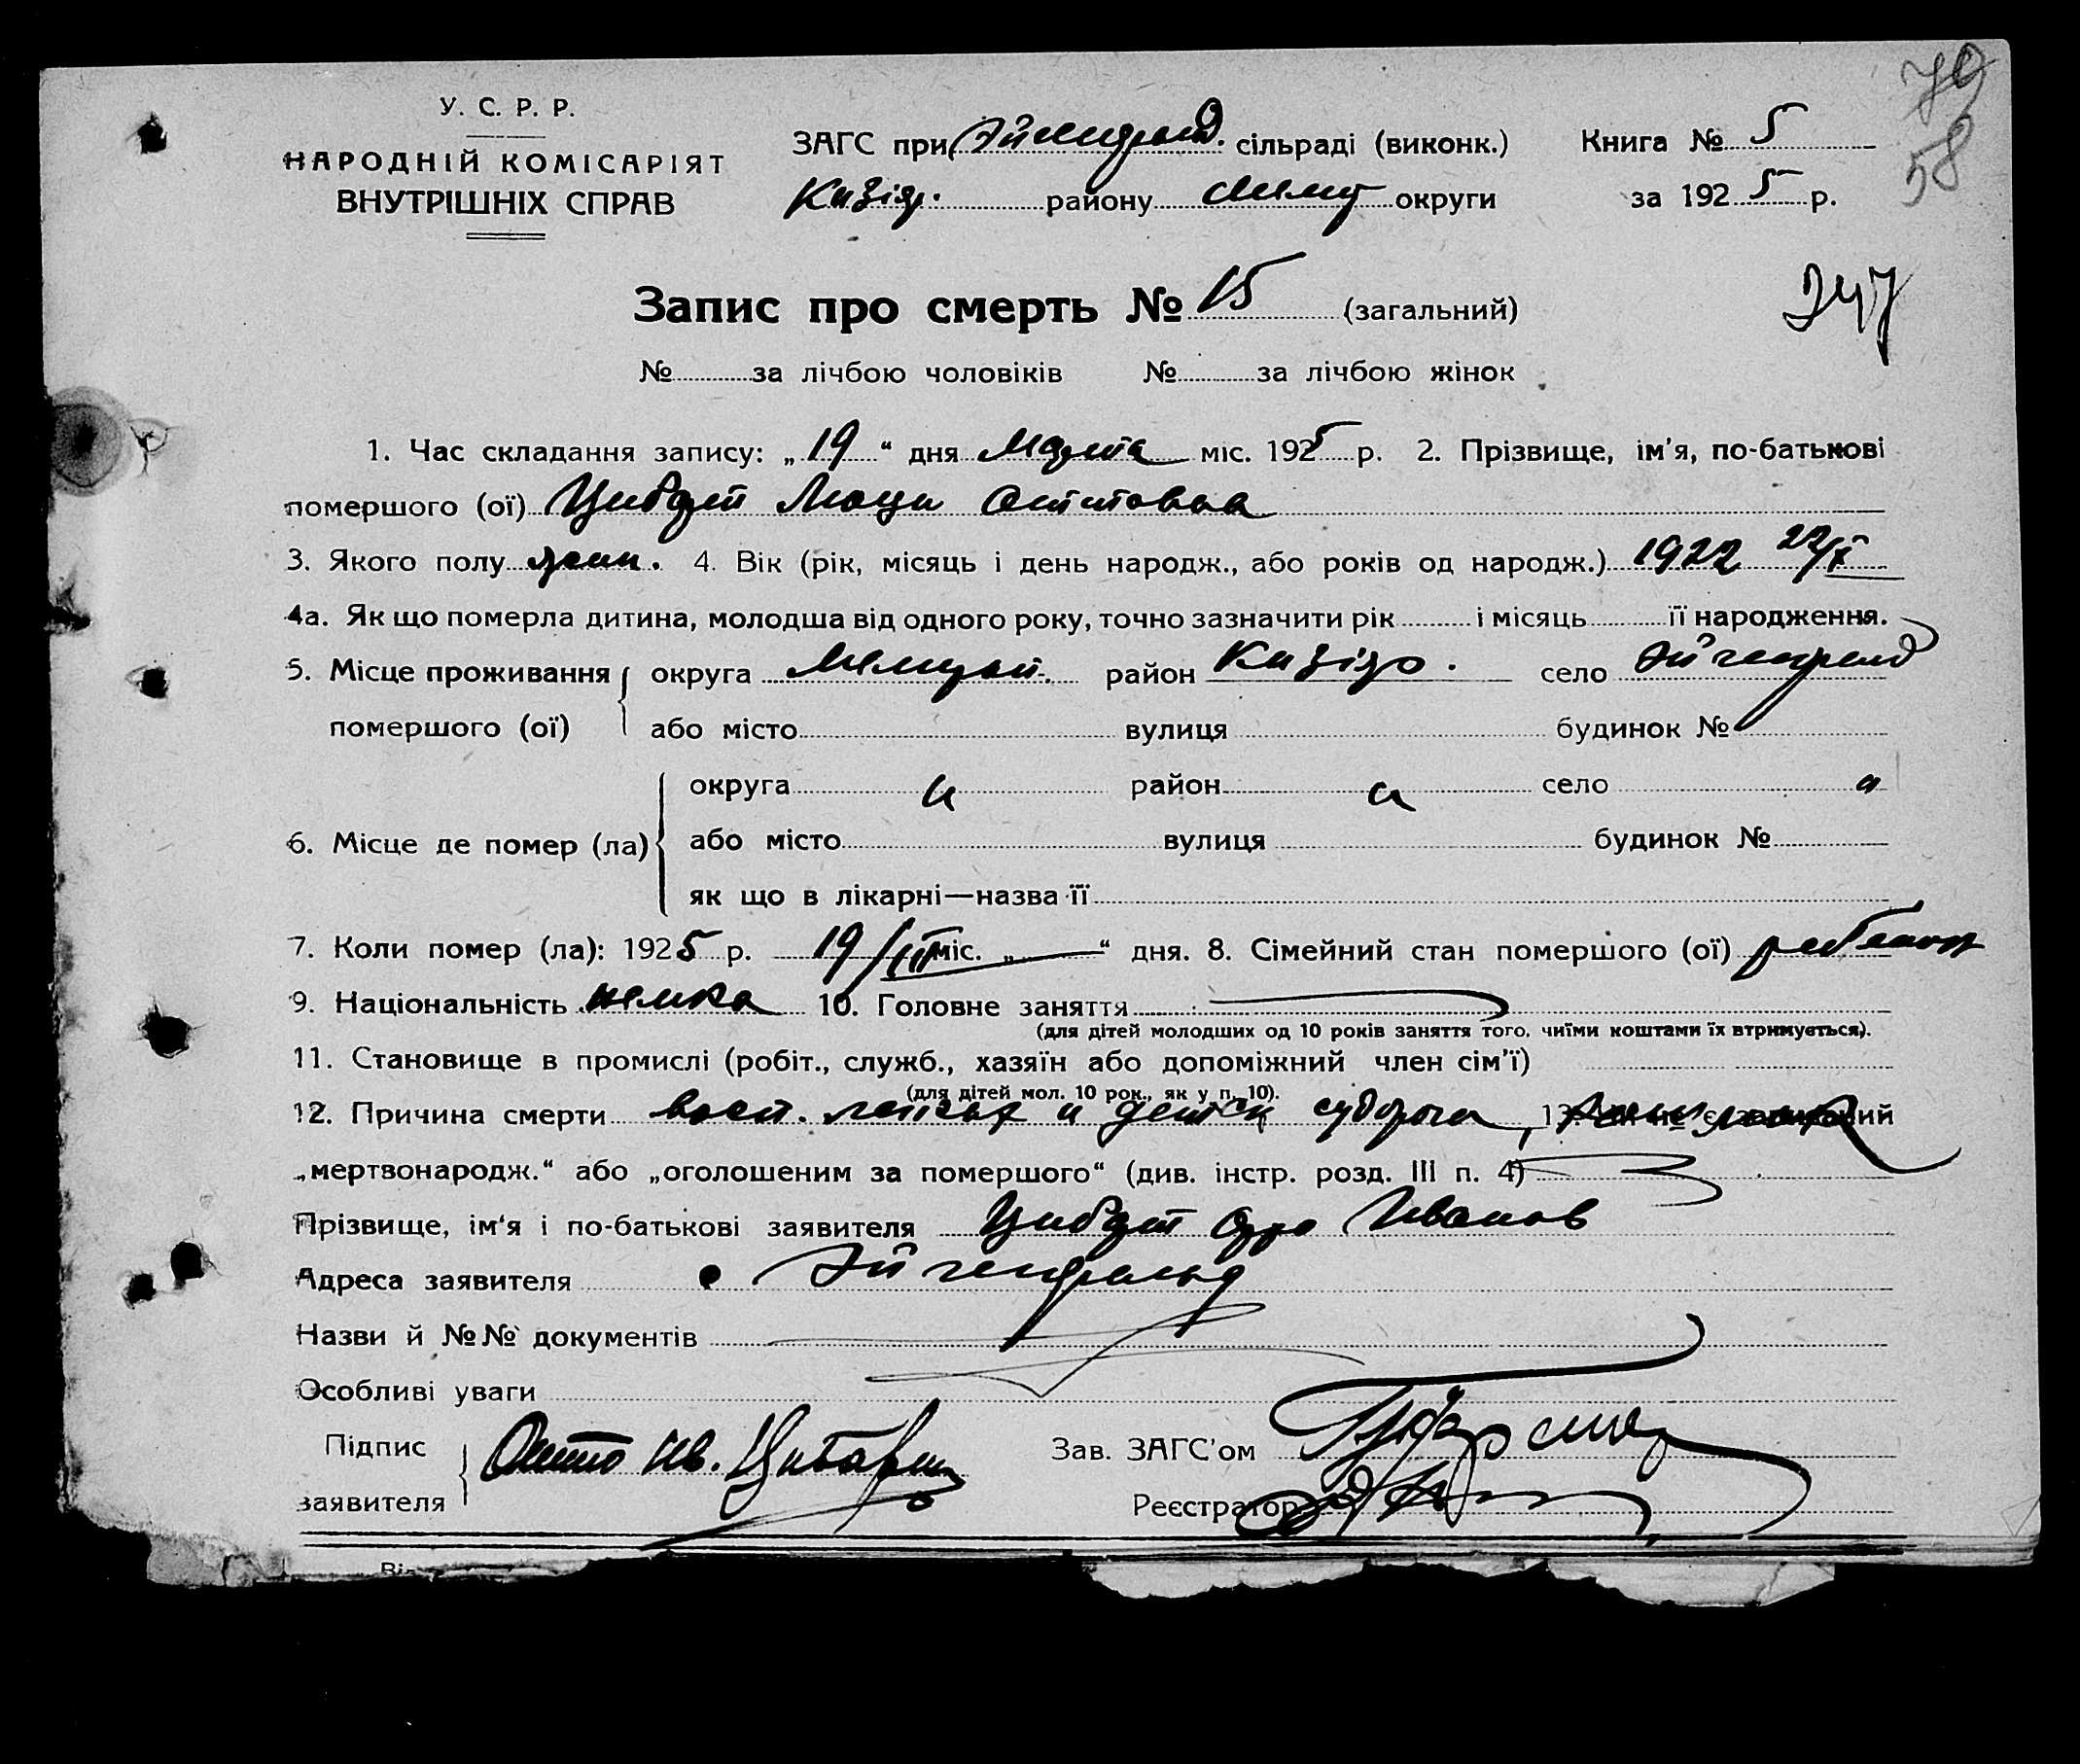 70
58
У. С. Р. Р.
НАРОДНІЙ КОМІСАРІЯТ
ВНУТРІШНІХ СПРАВ
ЗАГС при сільраді (виконк.)
району округи
Книга № 5
за 1925 р.
247
Запис про смерть № 15 (загальний)
№ за лічбою чоловіків № за лічбою жінок
1. Час складання запису: „19“ дня Марта міс. 1925 р. 2. Прізвище, ім'я, по-батькові
помершого (ої) Цибарт Люци Оттовна
3. Якого полу жен. 4. Вік (рік, місяць і день народж., або років од народж.) 1922 22/X
4а. Як що померла дитина, молодша від одного року, точно зазначити рік і місяць її народження.
5. Місце проживання округа район село
помершого (ої) або місто вулиця будинок №
округа район село
6. Місце де помер (ла) або місто вулиця будинок №
як що в лікарні—назва її
7. Коли помер (ла): 1925 р. 19/III міс. „ “ дня. 8. Сімейний стан помершого (ої) ребенок
9. Національність немка 10. Головне заняття
(для дітей молодших од 10 років заняття того, чиїми коштами їх втримується).
11. Становище в промислі (робіт., служб., хазяїн або допоміжний член сім'ї)
(для дітей мол. 10 рок., як у п. 10).
12. Причина смерти восп. легких и детск судорога, 13.
„мертвонародж.“ або „оголошеним за помершого“ (див. інстр. розд. III п. 4)
Прізвище, ім'я і по-батькові заявителя Цибарт Иванов
Адреса заявителя Эйгенфельд
Назви й №№ документів
Особливі уваги
Підпис
заявителя
Отто Ив. Цибарт
Зав. ЗАГС'ом
Реєстратор